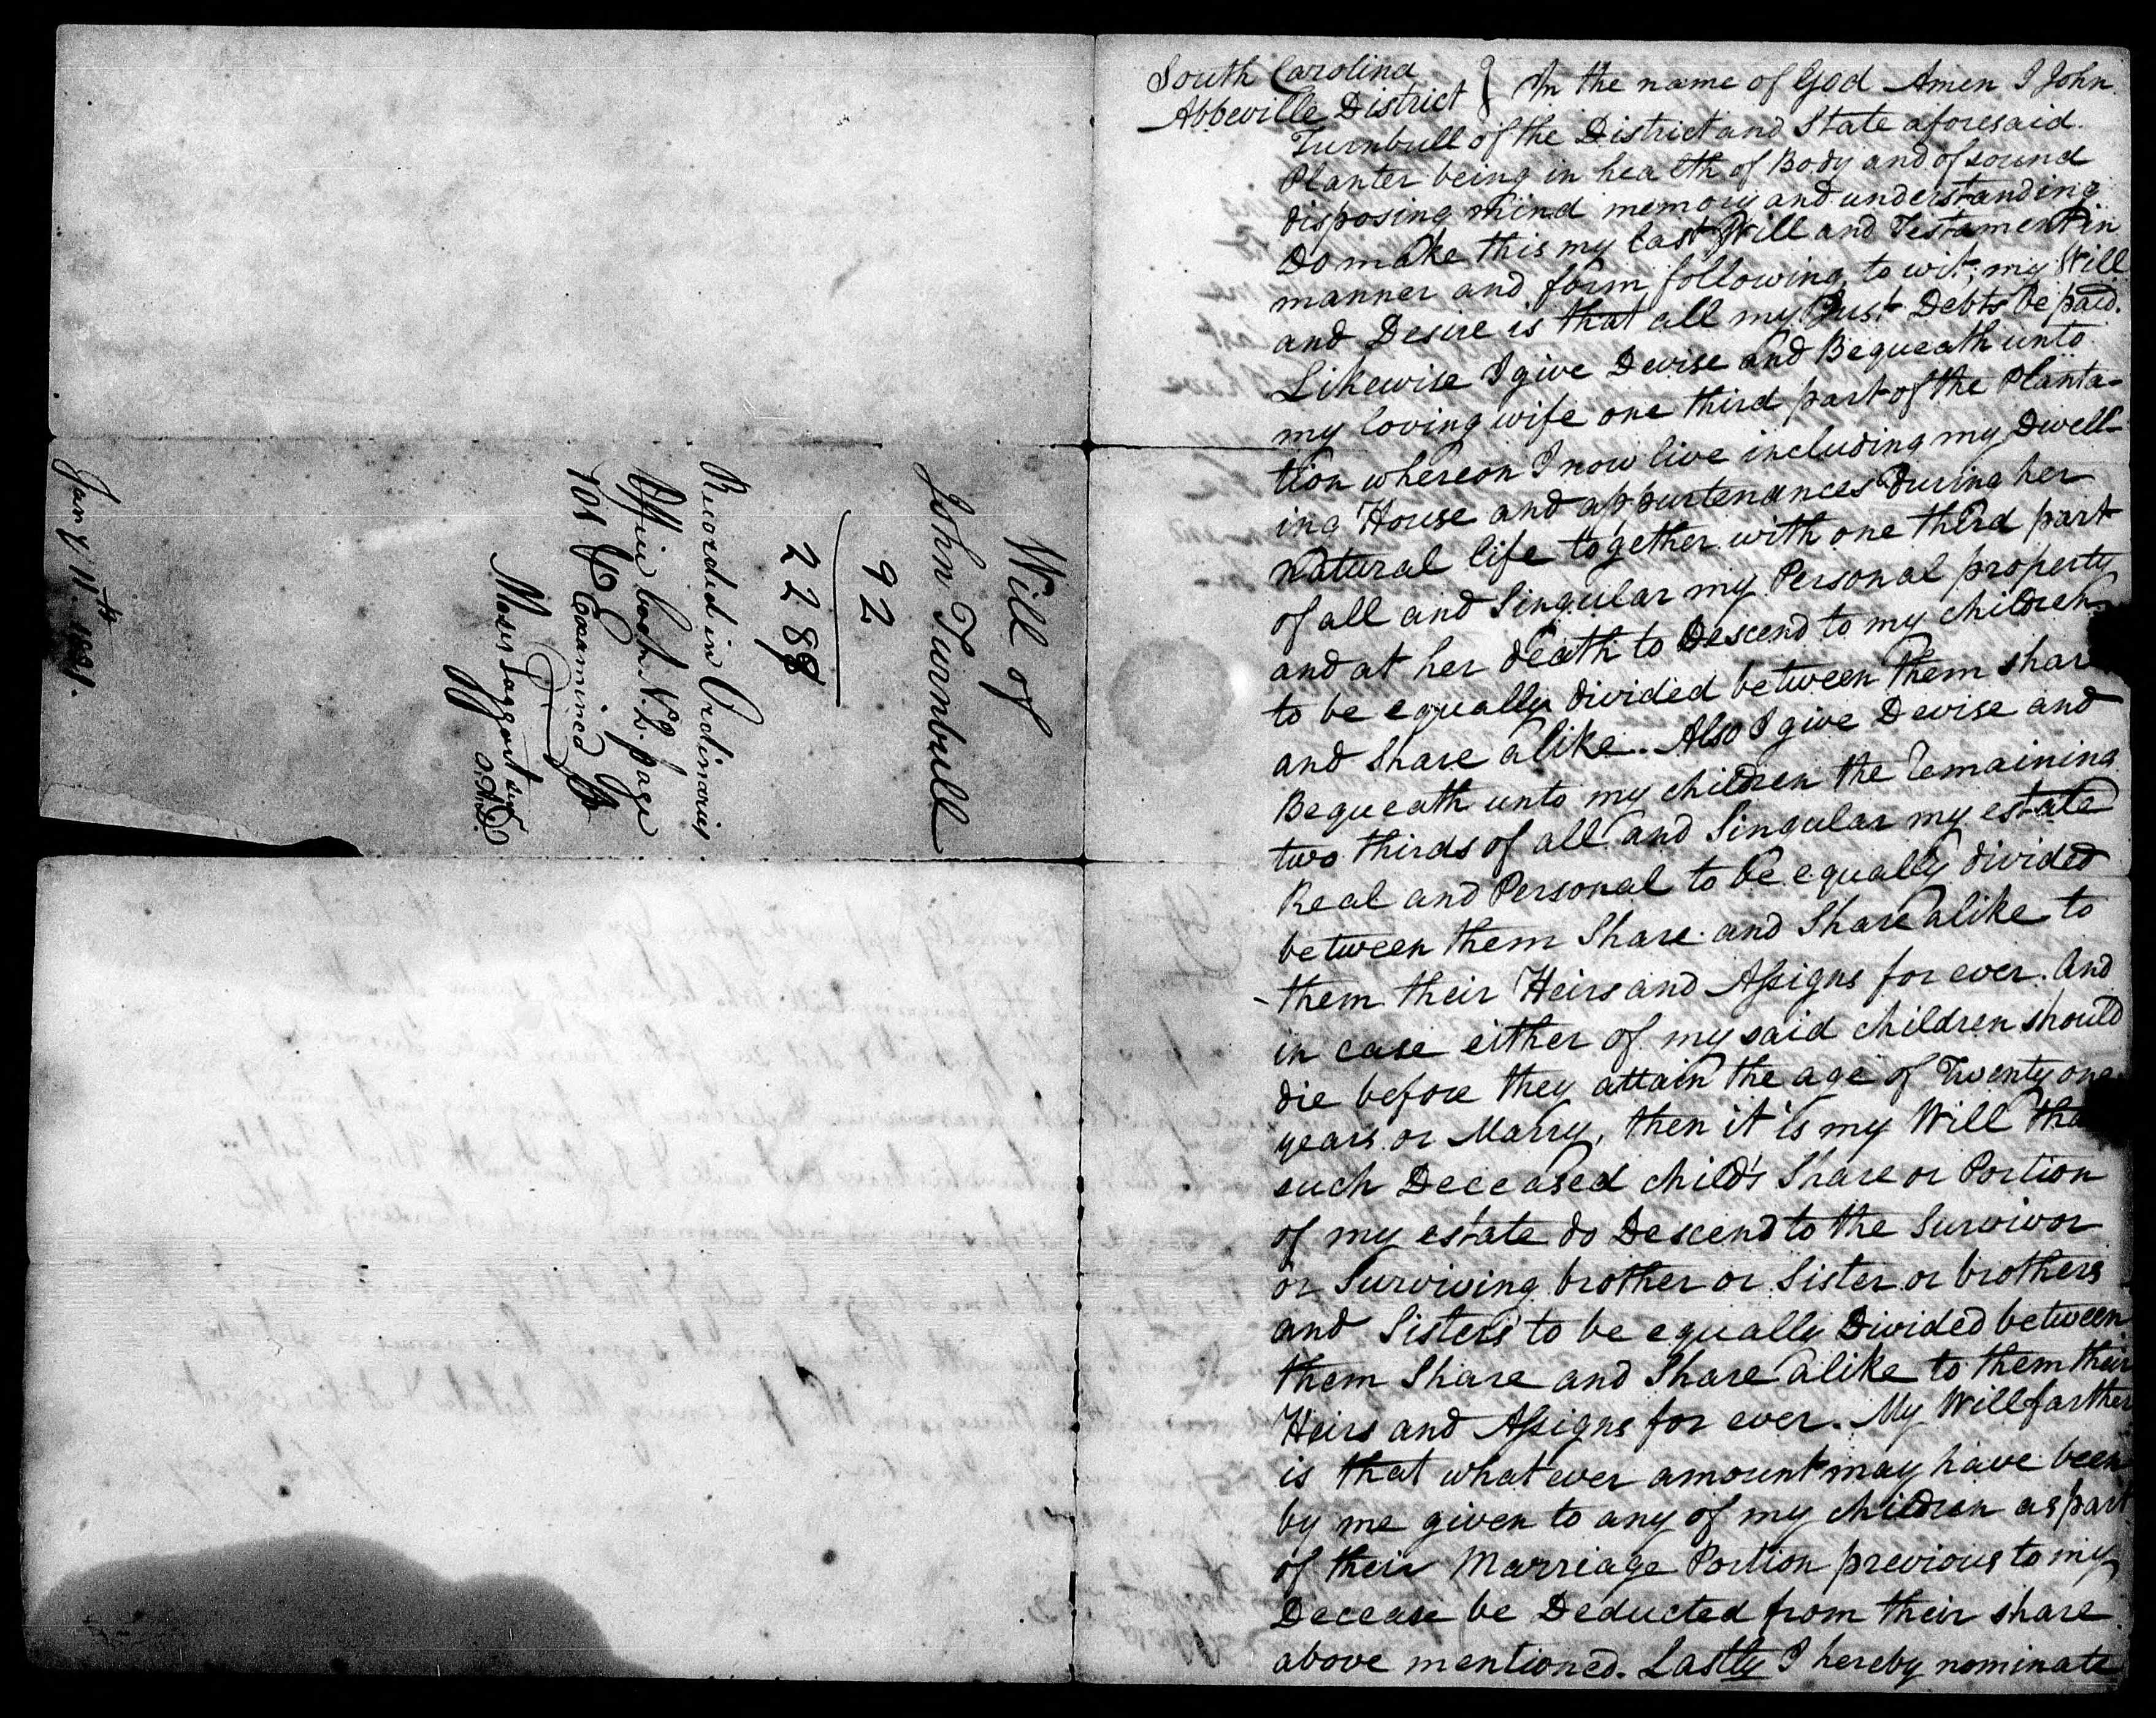 Will of
John Turnbull
92
2288
Recorded in Ordinaries
Office book No. 2. page
101 & Examined
Moses Taggart senr
O.A.D.
Jany 11th
South Carolina
Abbeville District } In the name of God Amen I John
Turnbull of the District and State aforesaid
Planter being in health of Body and of sound
disposing mind memory and understanding
do make this my last Will and Testament in
manner and form following, to wit, my Will
and Desire is that all my Just Debts be paid.
Likewise I give Devise and Bequeath unto
my loving wife one third part of the Planta-
tion whereon I now live including my Dwell-
ing House and appurtenances During her
natural life together with one third part
of all and Singular my Personal property
and at her death to Descend to my children
to be equally divided between them shar
and Share alike. Also I give Devise and
Bequeath unto my children the remaining
two thirds of all and Singular my estate
Real and Personal to be equally divided
between them Share and Share alike to
them their Heirs and Assigns for ever. And
in case either of my said children should
die before they attain the age of Twenty one
years or Marry, then it is my Will tha
such Deceased child's Share or Portion
of my estate do Descend to the Survivor
or Surviving brother or Sister or brothers
and Sisters to be equally Divided between
them Share and Share alike to them their
Heirs and Assigns for ever. My Will farther
is that whatever amount may have been
by me given to any of my children as part
of their Marriage Portion previous to my
Decease be Deducted from their share
above mentioned. Lastly I hereby nominate